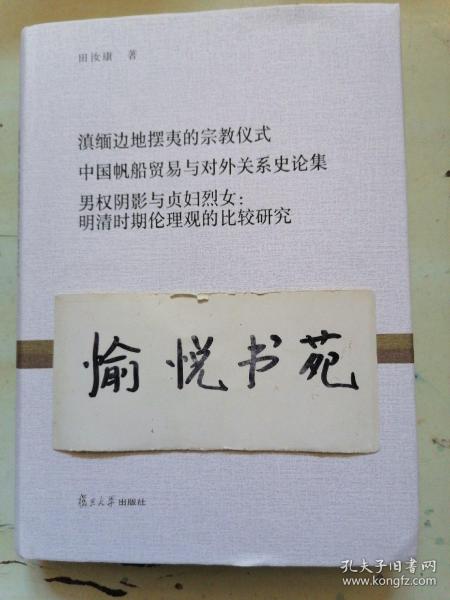 田汝康 著
滇缅边地摆夷的宗教仪式
中国帆船贸易与对外关系史论集
男权阴影与贞妇烈女：
明清时期伦理观的比较研究
愉悦书苑
復旦大學出版社
孔夫子旧书网
www.kongfz.com